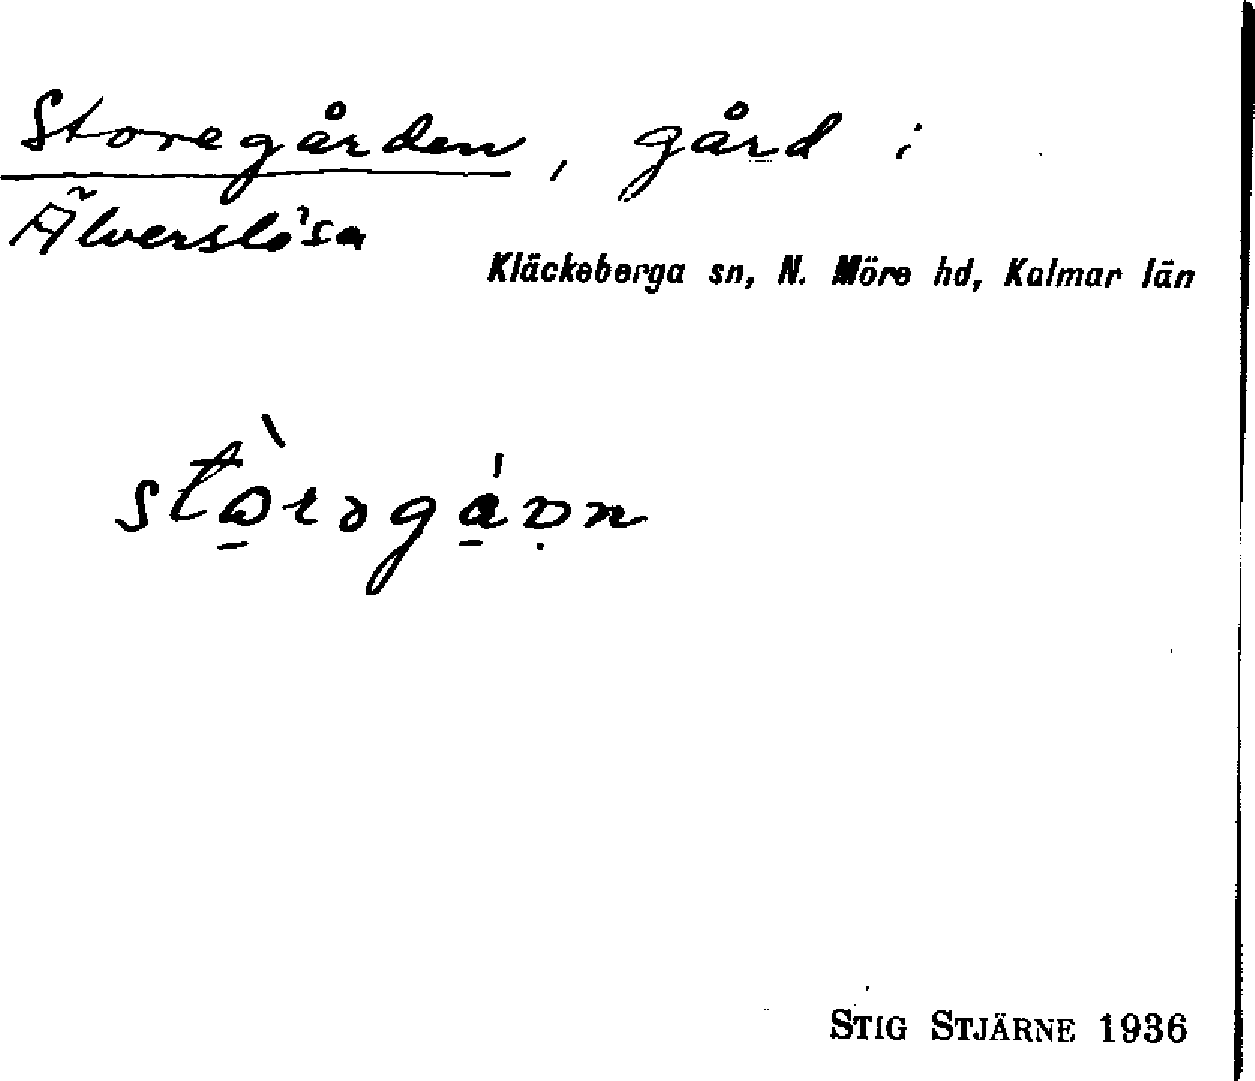 Storegården, gård i
Älverslösa
Kläckeberga sn, N. Möre hd, Kalmar län
STIG STJÄRNE 1936